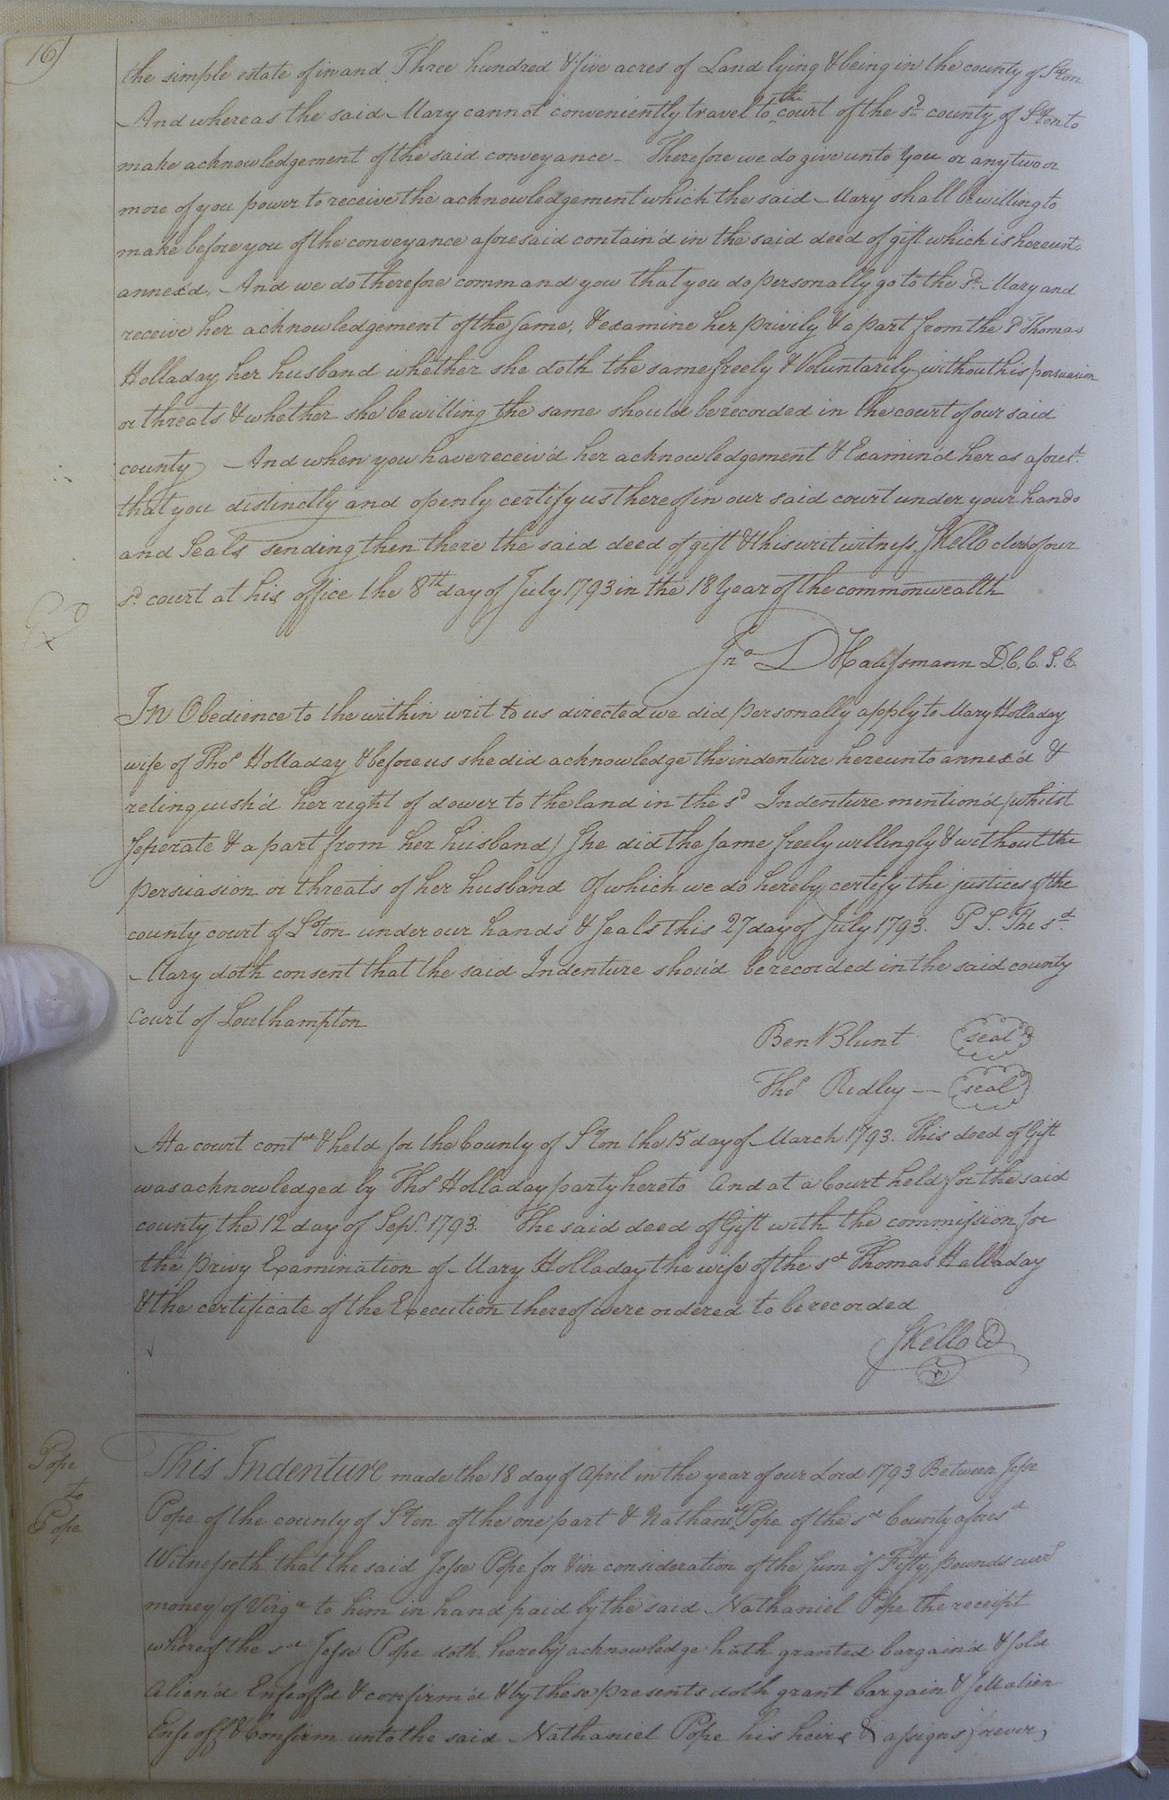 16)
the simple estate of in and Three hundred & five acres of Land lying & being in the county of S°ton
And whereas the said Mary cannot conveniently travel to the court of the sd county of S°ton to
make acknowledgement of the said conveyance - Therefore we do give unto you or any two or
more of you power to receive the acknowledgement which the said Mary shall be willing to
make before you of the conveyance aforesaid contain'd in the said deed of gift which is hereunt.
annex'd. And we do therefore command you that you do personally go to the sd Mary and
receive her acknowledgement of the same, & examine her privily & a part from the sd Thomas
Holladay her husband whether she doth the same freely & Voluntarily without his persuasion
or threats & whether she be willing the same should be recorded in the court of our said
county And when you have receiv'd her acknowledgement & Examin'd her as aforesd
that you distinctly and openly certify us thereof in our said court under your hands
and Seals sending then there the said deed of gift & this writ witness SKello clerk of our
sd court at his office the 8th day of July 1793 in the 18 Year of the commonwealth
Jno D Haussmann D.C.C.S.C.
In Obedience to the within writ to us directed we did personally apply to Mary Holladay
wife of Thos Holladay & before us she did acknowledge the indenture hereunto annex'd &
relinquish'd her right of dower to the land in the sd Indenture mention'd (whilst
seperate & a part from her husband) she did the same freely willingly & without the
persuasion or threats of her husband Of which we do hereby certify the justices of the
county court of S°ton under our hands & seals this 27 day of July 1793. P S. The sd
Mary doth consent that the said Indenture shou'd be recorded in the said county
Court of Southampton
Ben Blunt seal
Thos Ridley — seal
At a court contd & held for the County of S°ton the 15 day of March 1793. This deed of Gift
was acknowledged by Thos Holladay party hereto And at a Court held for the said
county the 12 day of Sept. 1793. The said deed of Gift with the commission for
the privy Examination of Mary Holladay the wife of the sd Thomas Halladay
& the certificate of the Execution thereof were ordered to be recorded
SKello
Pope
to
Pope
This Indenture made the 18 day of April in the year of our Lord 1793 Between Jesse
Pope of the county of S°ton of the one part & Nathaniel Pope of the sd County aforesd
Witnesseth that the said Jesse Pope for & in consideration of the sum of Fifty pounds curr
money of Virga to him in hand paid by the said Nathaniel Pope the receipt
whereof the sd Jesse Pope doth hereby acknowledge hath granted bargain'd & sold
Alien'd Enfeoff'd & confirm'd & by these presents doth grant bargain & sell alien
Enfeoff & Confirm unto the said Nathaniel Pope his heirs & assigns forever;